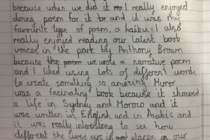 because when we did it I really enjoyed
doing poem for it and it was my
favourite type of poem, a haiku. I also
really enjoyed reading our latest book
voices in the park by Anthony Brown
because the we wrote a narrative poem
and I like using lots of different words
to create something in amazing. Mirror
was a fascinating book because it showed
a life in Sydney and Moroco and it
was written in English and in Arabic and
it was really interesting to see how
different the places on our